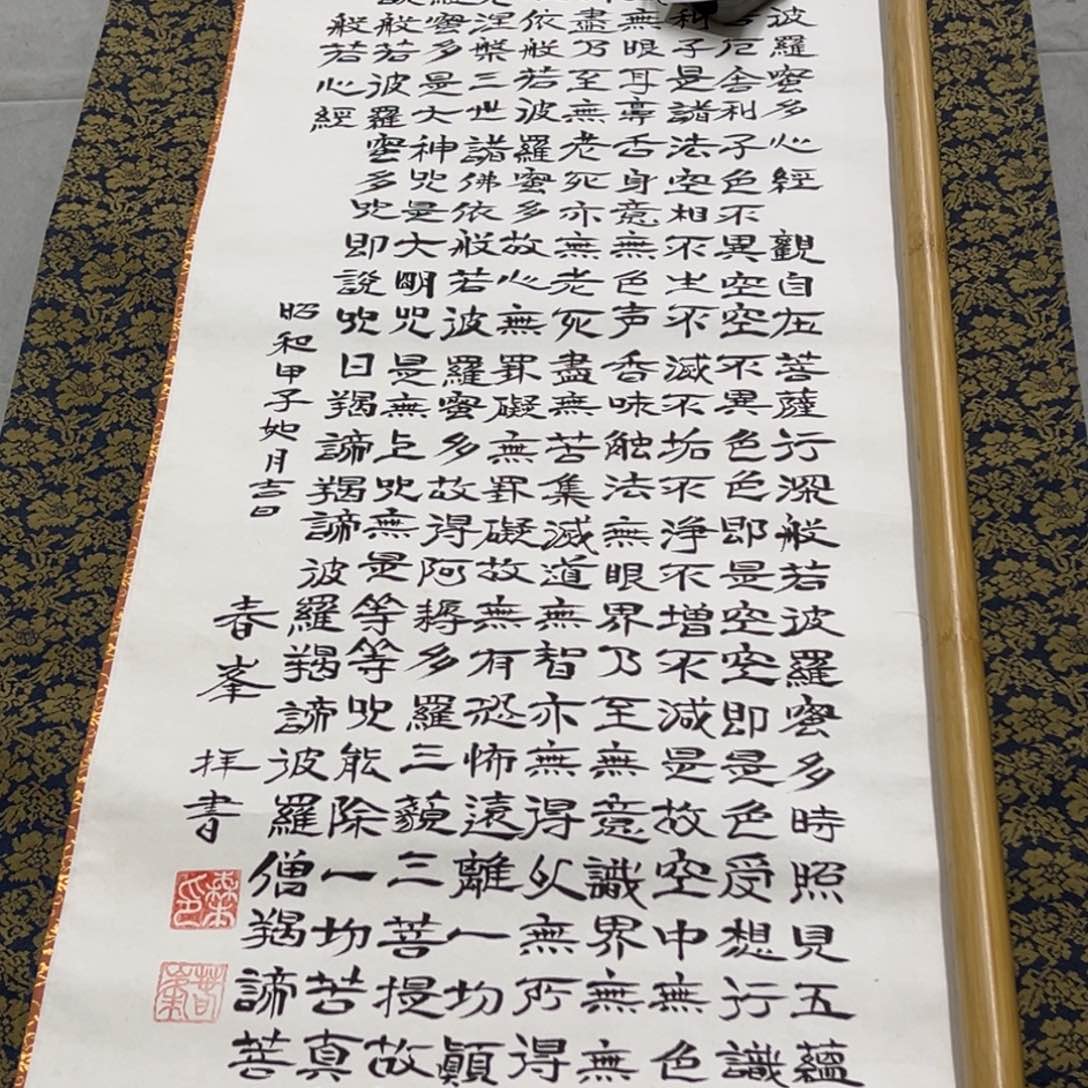 波羅蜜多心經 觀自在菩薩行深般若波羅蜜多時照見五蘊
厄舍利子色不異空空不異色色即是空空即是色受想行識
利子是諸法空相不生不滅不垢不淨不增不減是故空中無色
無眼耳鼻舌身意無色声香味触法無眼界乃至無意識界無無
盡乃至無老死亦無老死盡無苦集滅道無智亦無得以無所得
依般若波羅蜜多故心無罣礙無罣礙故無有恐怖遠離一切顚
涅槃三世諸佛依般若波羅蜜多故得阿耨多羅三藐三菩提故
蜜多是大神呪是大明咒是無上呪無是等等呪能除一切苦真
般若波羅蜜多呪即說呪曰羯諦羯諦波羅羯諦波羅僧羯諦菩
般若心經
昭和甲子如月吉日
春峯 拝書